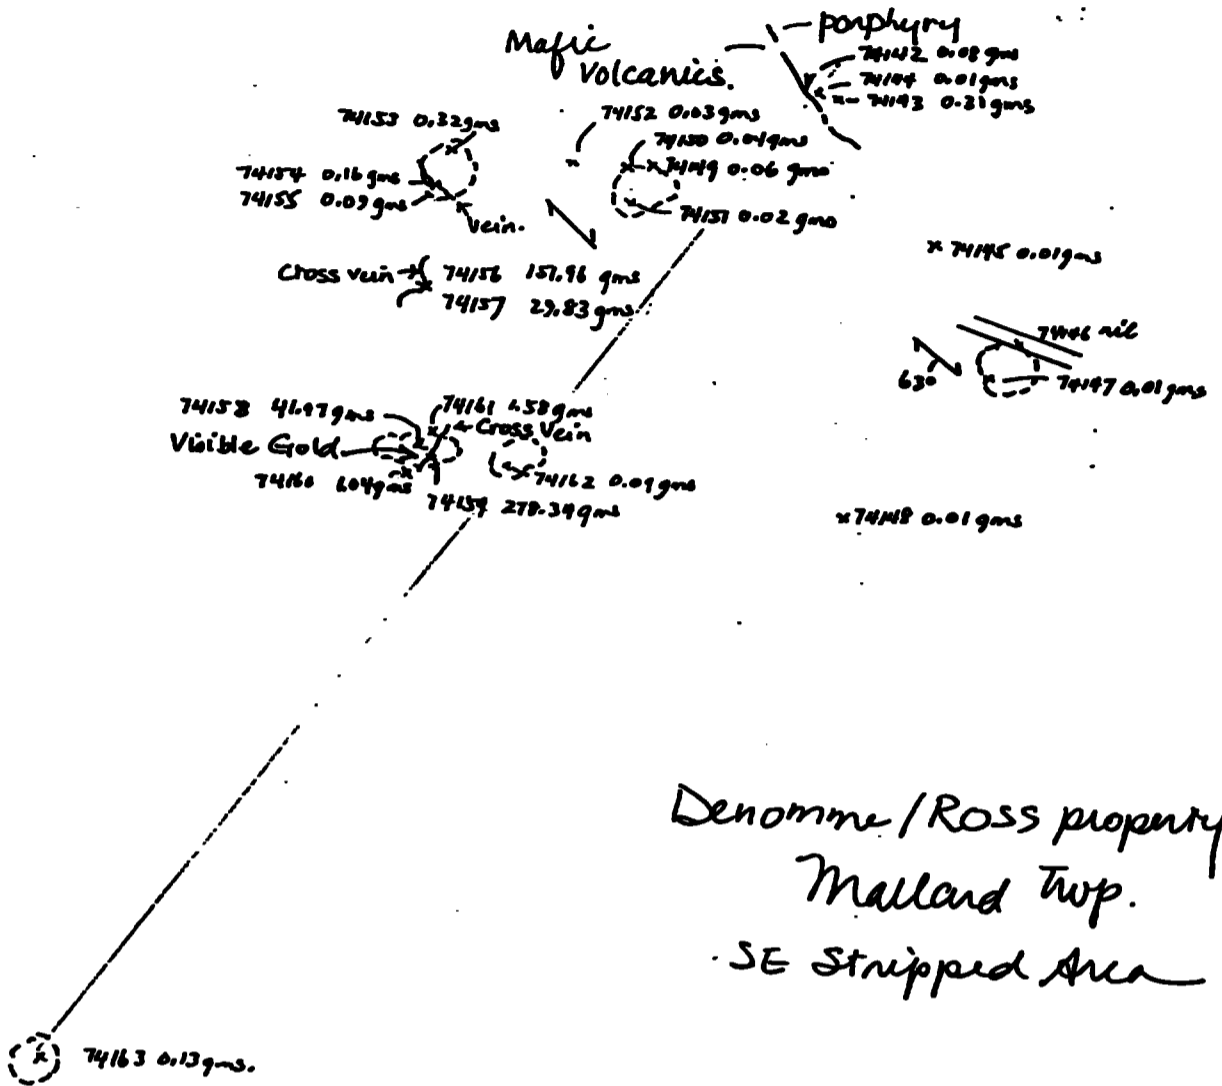 porphyry
Mafic
Volcanics.
74142 0.08 gms
74144 0.01 gms
74143 0.31 gms
74153 0.32 gms
74152 0.03 gms
74150 0.04 gms
74149 0.06 gms
74154 0.16 gms
74155 0.09 gms
74151 0.02 gms
Vein.
x 74145 0.01 gms
Cross vein 74156 157.96 gms
74157 29.83 gms
74146 nil
63°
74147 0.01 gms
74158 41.97 gms
74161 1.58 gms
Cross Vein
Visible Gold
74160 1.04 gms
74162 0.09 gms
74159 278.34 gms
x 74148 0.01 gms
Denomme / Ross property
Mallard Twp.
SE Stripped Area
74163 0.13 gms.